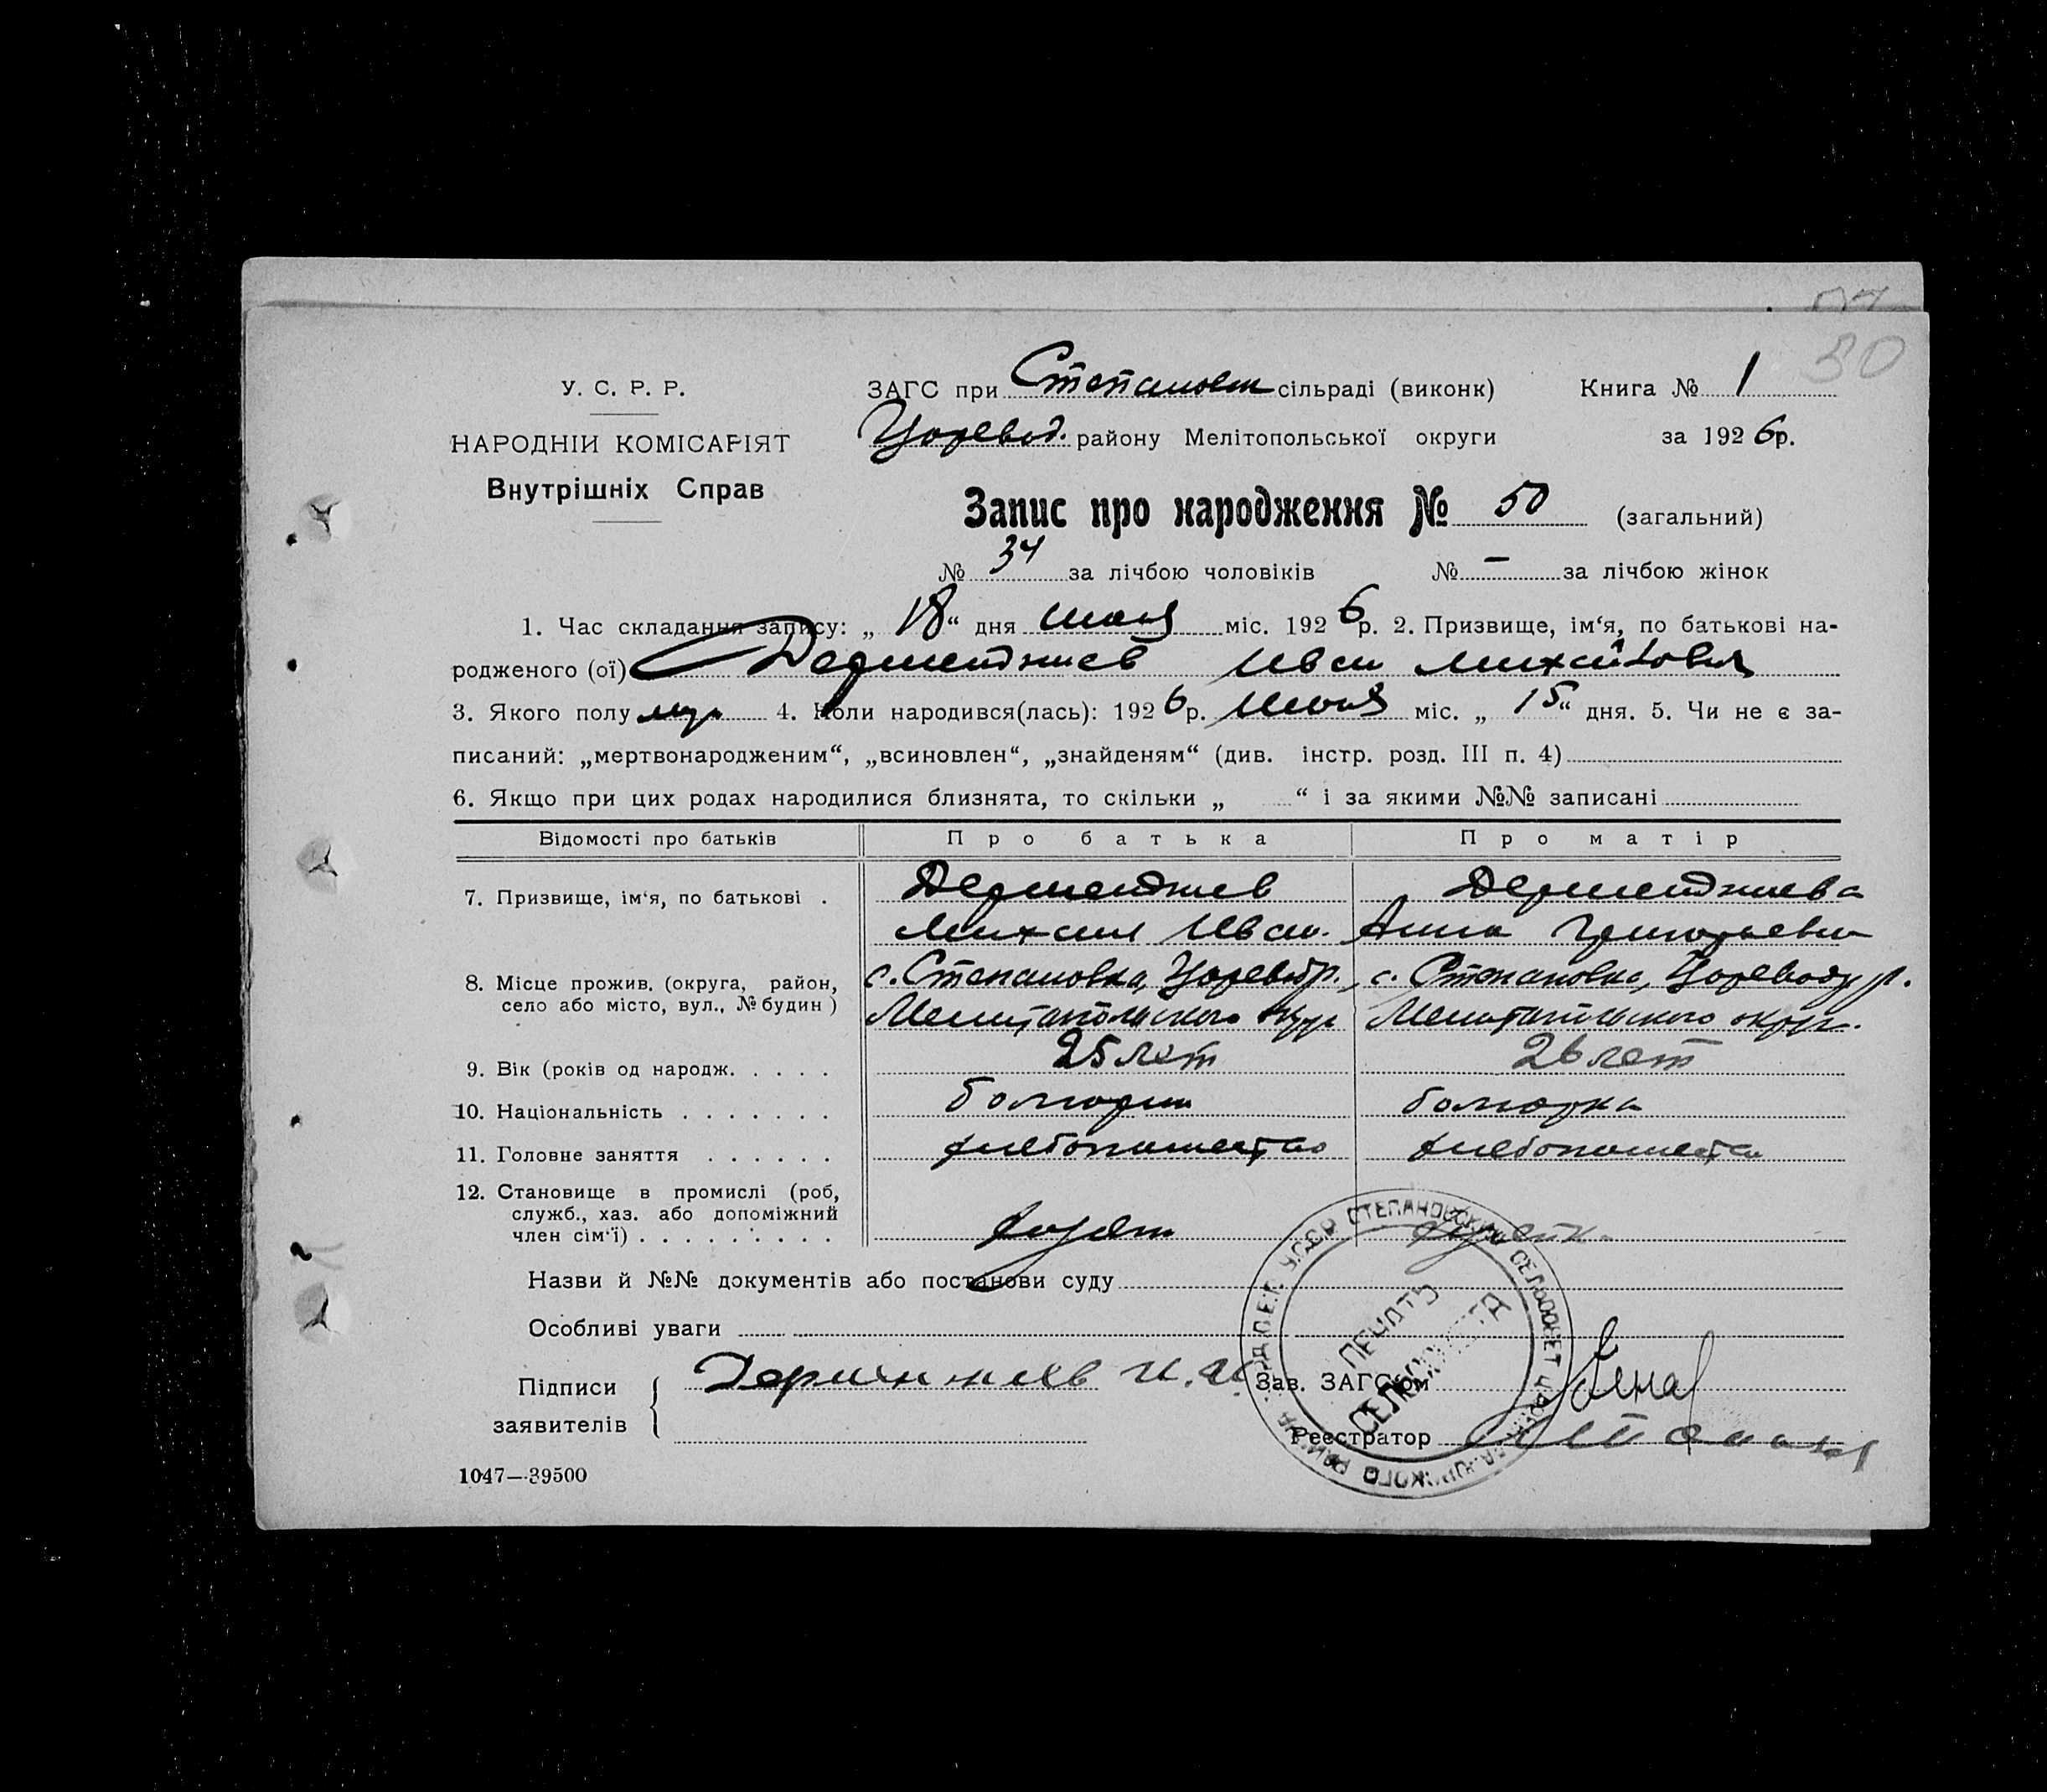 30
У. С. Р. Р.
НАРОДНІЙ КОМІСАРІЯТ
Внутрішніх Справ
ЗАГС при Степановск сільраді (виконк) Книга № 1
Царевод. району Мелітопольської округи за 1926р.
Запис про народження № 50 (загальний)
№ 34 за лічбою чоловіків № – за лічбою жінок
1. Час складання запису: „18“ дня июля міс. 1926р. 2. Призвище, ім‘я, по батькові на-
родженого (ої) Дерменджиев Иван Михайлович
3. Якого полу муж 4. Коли народився(лась): 1926р. Июля міс. „15“ дня. 5. Чи не є за-
писаний: „мертвонародженим“, „всиновлен“, „знайденям“ (див. інстр. розд. III п. 4)
6. Якщо при цих родах народилися близнята, то скільки „ “ і за якими №№ записані
Відомості про батьків Про батька Про матір
7. Призвище, ім‘я, по батькові . Дерменджиев Дерменджиева
Михаил Иван. Анна Григорьевна
8. Місце прожив. (округа, район, с. Степановка, Царевод р., с. Степановка, Цареводу р.
село або місто, вул., № будин) Мелитопольского окр Мелитопольского округ.
9. Вік (років од народж. . . . . 25 лет 26 лет
10. Національність . . . . . . . болгарин болгарка
11. Головне заняття . . . . . . хлебопашество хлебопашество
12. Становище в промислі (роб,
служб., хаз. або допоміжний
член сім‘ї) . . . . . . . . . хозяин
Назви й №№ документів або постанови суду
Особливі уваги
Підписи заявителів
Зав. ЗАГС‘ом
Реєстратор
У.С.С.Р. СТЕПАНОВСКИЙ СЕЛЬСОВЕТ
ПЕЧАТЬ
СЕЛЬСОВЕТА
1047—39500